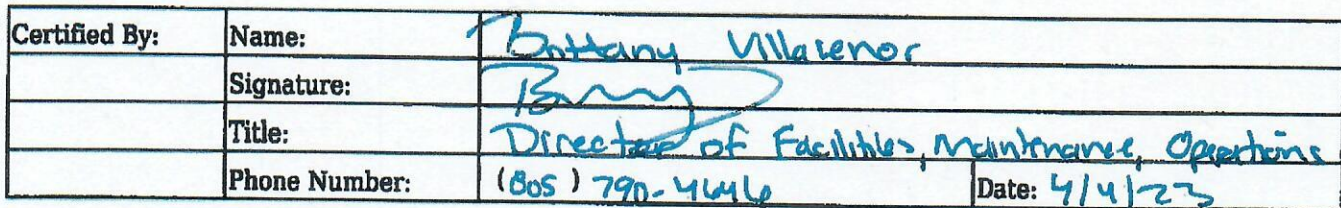 Certified By: Name: Brittany Villasenor
Signature:
Title: Director of Facilities, Maintenance, Operations
Phone Number: (805) 790-4646 Date: 4/4/23